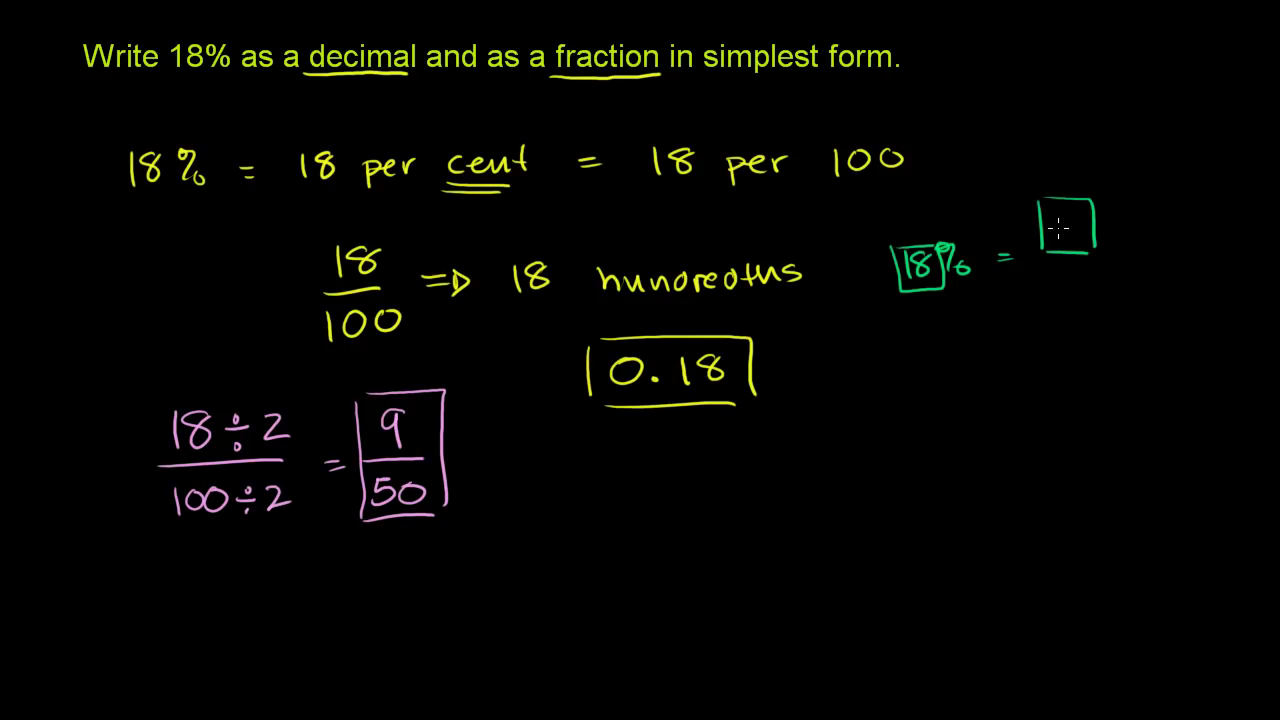 Write 18% as a decimal and as a fraction in simplest form.
18% = 18 per cent = 18 per 100
18/100 ⇒ 18 hundredths
18% =
0.18
18÷2/100÷2 = 9/50